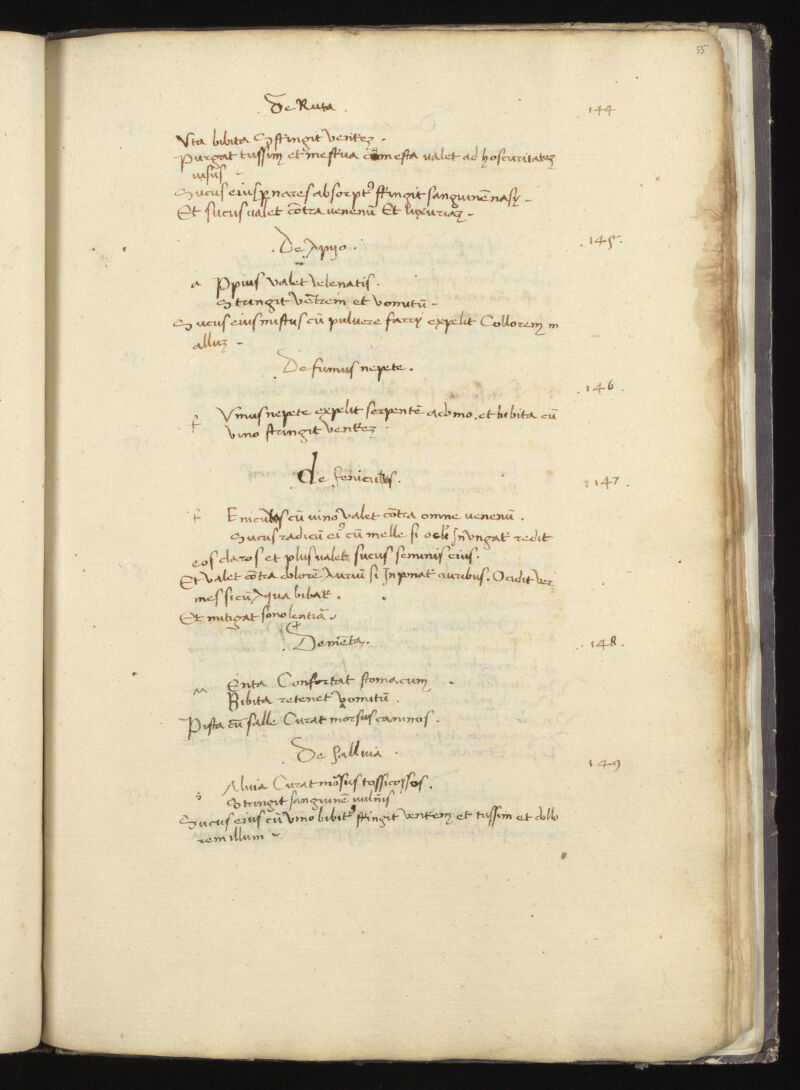 55
De Ruta . 144
Vta bibita Cõstringit ventrez .
Purgat tussim et mestrua comesta valet ad hoscuritatez
uisus
Sucus eius p nares absorptꝰ stringit sanguinẽ nasy .
Et sucus valet cõtra venenũ Et luxuriaz .
. De Apijo . . 145 .
a Ppius valet velenatis .
Stringit vẽtrem et vomitũ .
Sucus eius mistus cũ pulvere farrj expelit Collorem m
alluz
De fumus nepete . . 146
f Vmus nepete expelit serpentẽ adomo . et bibita cũ
vino stringit ventrez
de feniculos . : 147 .
f Eniculos cũ uino valet cõtra omne venenũ .
Sucus radicũ eiꝰ cũ melle si ocli Inungat redit
eos claros et plus valet sucus seminis eius .
Et valet cõtra dolorẽ Auriũ si Inponat auribus . Ocidit ver
mes si cũ Aqua bibat .
Et mitigat sonolentiã .
De mẽta . . 148 .
m Enta Confortat stomacum .
Bibita retenet vomitũ .
Pista cũ salle Curat morsus caninos .
De salluia . 149
s Aluia Curat morsus tossicossos .
Stringit sanguinẽ uulnis
Sucus eius cũ vino bibitꝰ stringit ventrem et tussim et dollo
rem illum